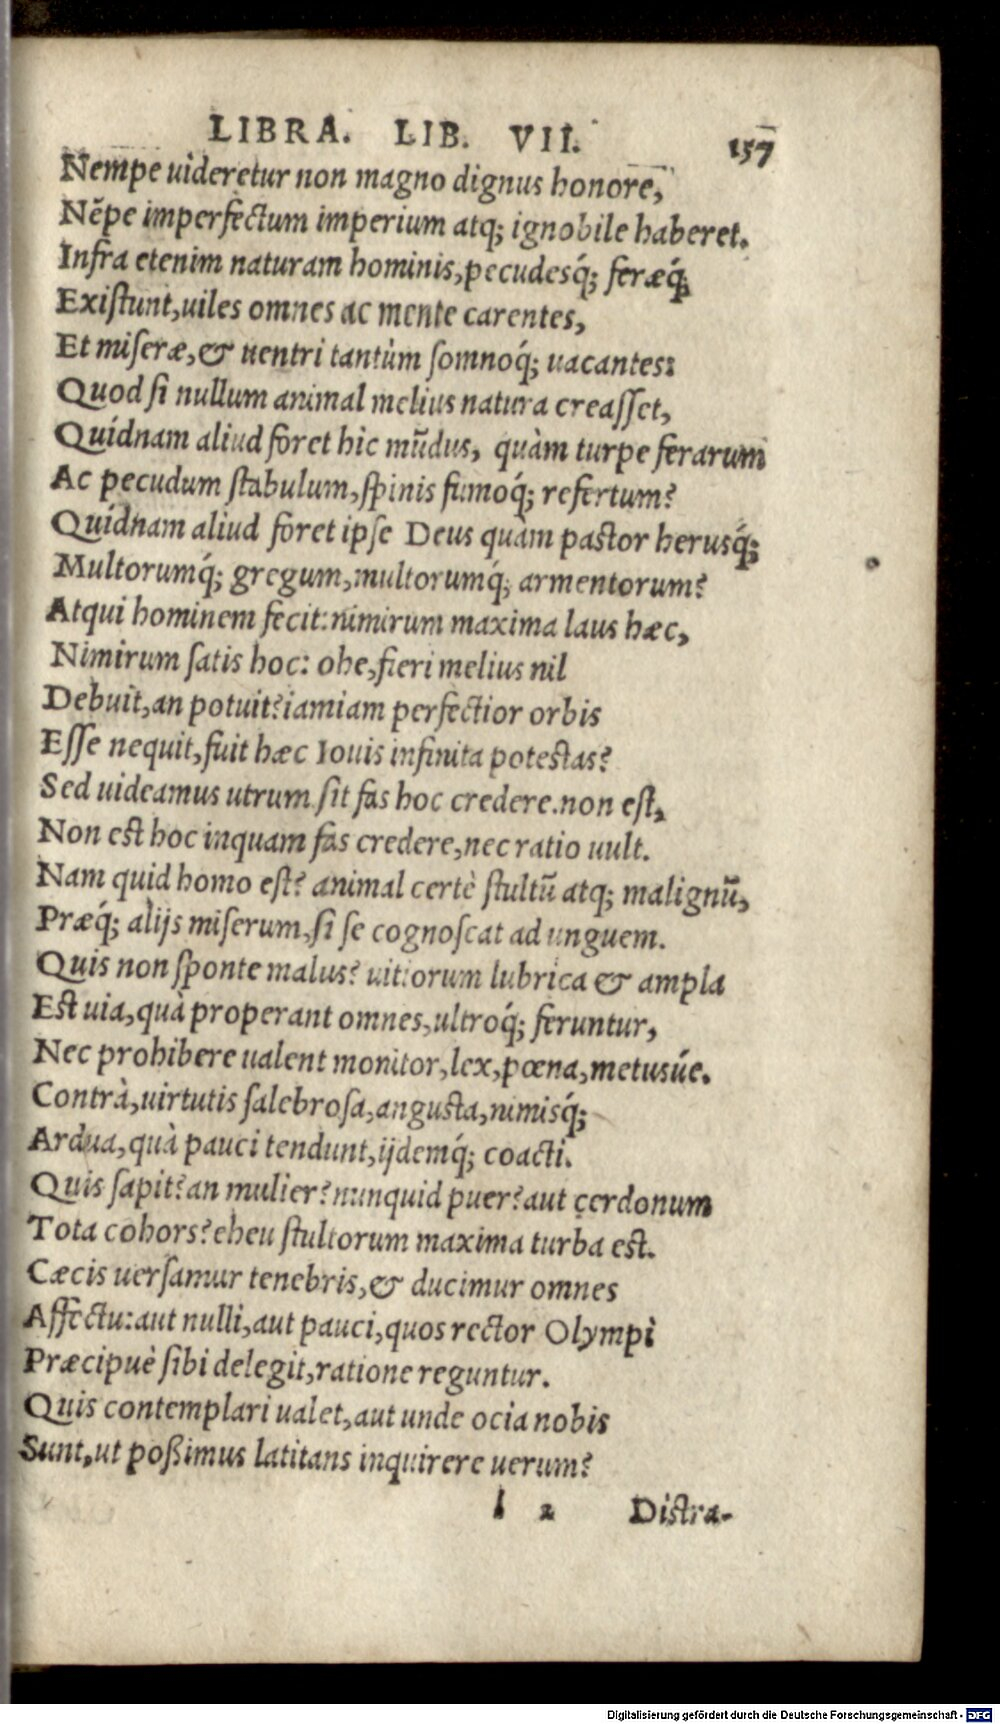 LIBRA. LIB. VII. 157
Nempe uideretur non magno dignus honore,
Nẽpe imperfectum imperium atq; ignobile haberet.
Infra etenim naturam hominis, pecudesq́; feræq́;
Existunt, uiles omnes ac mente carentes,
Et miseræ, & uentri tantùm somnoq́; uacantes:
Quod si nullum animal melius natura creasset,
Quidnam aliud foret hic mũdus, quàm turpe ferarum
Ac pecudum stabulum, spinis fumoq́; refertum?
Quidnam aliud foret ipse Deus quàm pastor herusq́;
Multorumq́; gregum, multorumq́; armentorum?
Atqui hominem fecit: nimirum maxima laus hæc,
Nimirum satis hoc: ohe, fieri melius nil
Debuit, an potuit? iamiam perfectior orbis
Esse nequit, fuit hæc Iouis infinita potestas?
Sed uideamus utrum sit fas hoc credere. non est,
Non est hoc inquam fas credere, nec ratio uult.
Nam quid homo est? animal certè stultũ atq; malignũ,
Præq́; alijs miserum, si se cognoscat ad unguem.
Quis non sponte malus? uitiorum lubrica & ampla
Est uia, quà properant omnes, ultroq́; feruntur,
Nec prohibere ualent monitor, lex, pœna, metusúe.
Contrà, uirtutis salebrosa, angusta, nimisq́;
Ardua, quà pauci tendunt, ijdemq́; coacti.
Quis sapit? an mulier? nunquid puer? aut cerdonum
Tota cohors? eheu stultorum maxima turba est.
Cæcis uersamur tenebris, & ducimur omnes
Affectu: aut nulli, aut pauci, quos rector Olympi
Præcipuè sibi delegit, ratione reguntur.
Quis contemplari ualet, aut unde ocia nobis
Sunt, ut poßimus latitans inquirere uerum?
l 2 Distra-
Digitalisierung gefördert durch die Deutsche Forschungsgemeinschaft - DFG